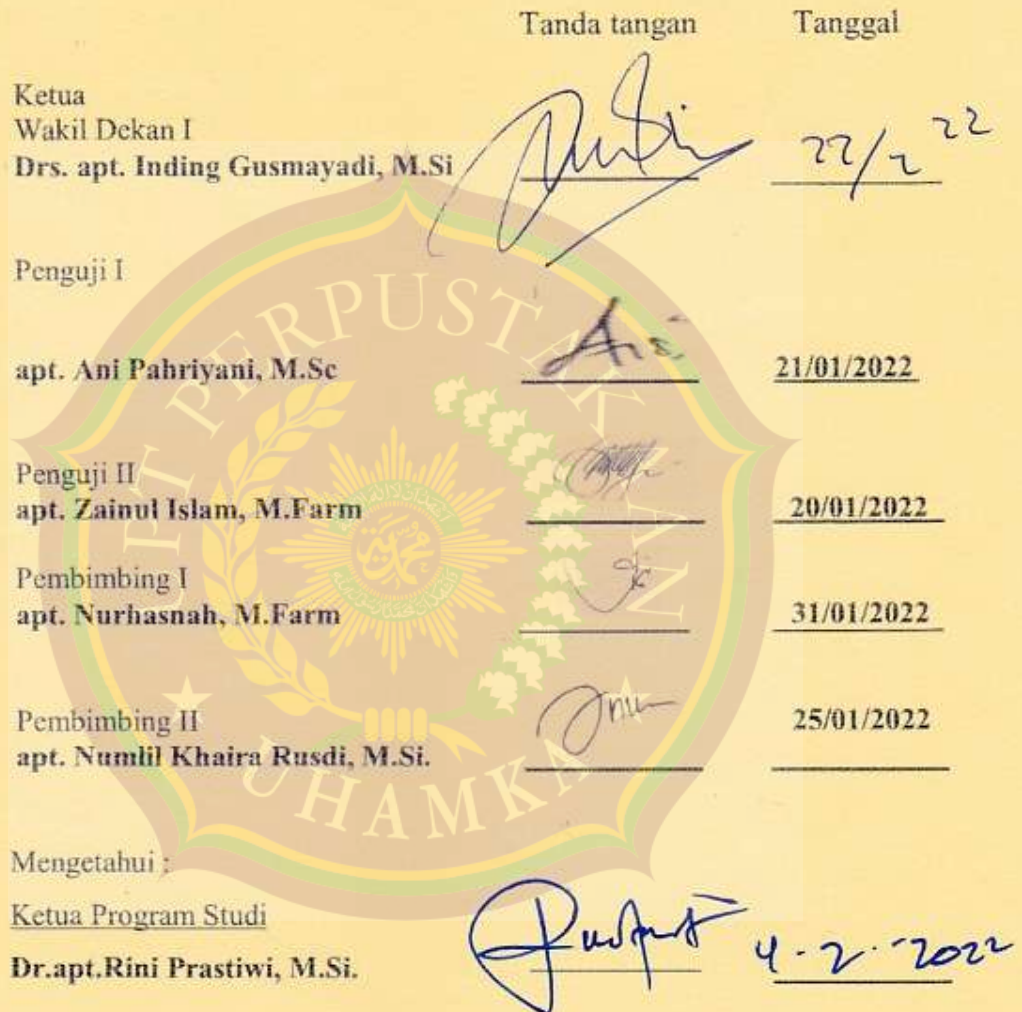 Tanda tangan Tanggal
Ketua
Wakil Dekan I
Drs. apt. Inding Gusmayadi, M.Si 22/2 22
Penguji I
apt. Ani Pahriyani, M.Sc 21/01/2022
Penguji II
apt. Zainul Islam, M.Farm 20/01/2022
Pembimbing I
apt. Nurhasnah, M.Farm 31/01/2022
Pembimbing II 25/01/2022
apt. Numlil Khaira Rusdi, M.Si.
Mengetahui :
Ketua Program Studi
Dr.apt.Rini Prastiwi, M.Si. 4-2-2022
UPT PERPUSTAKAAN
UHAMKA